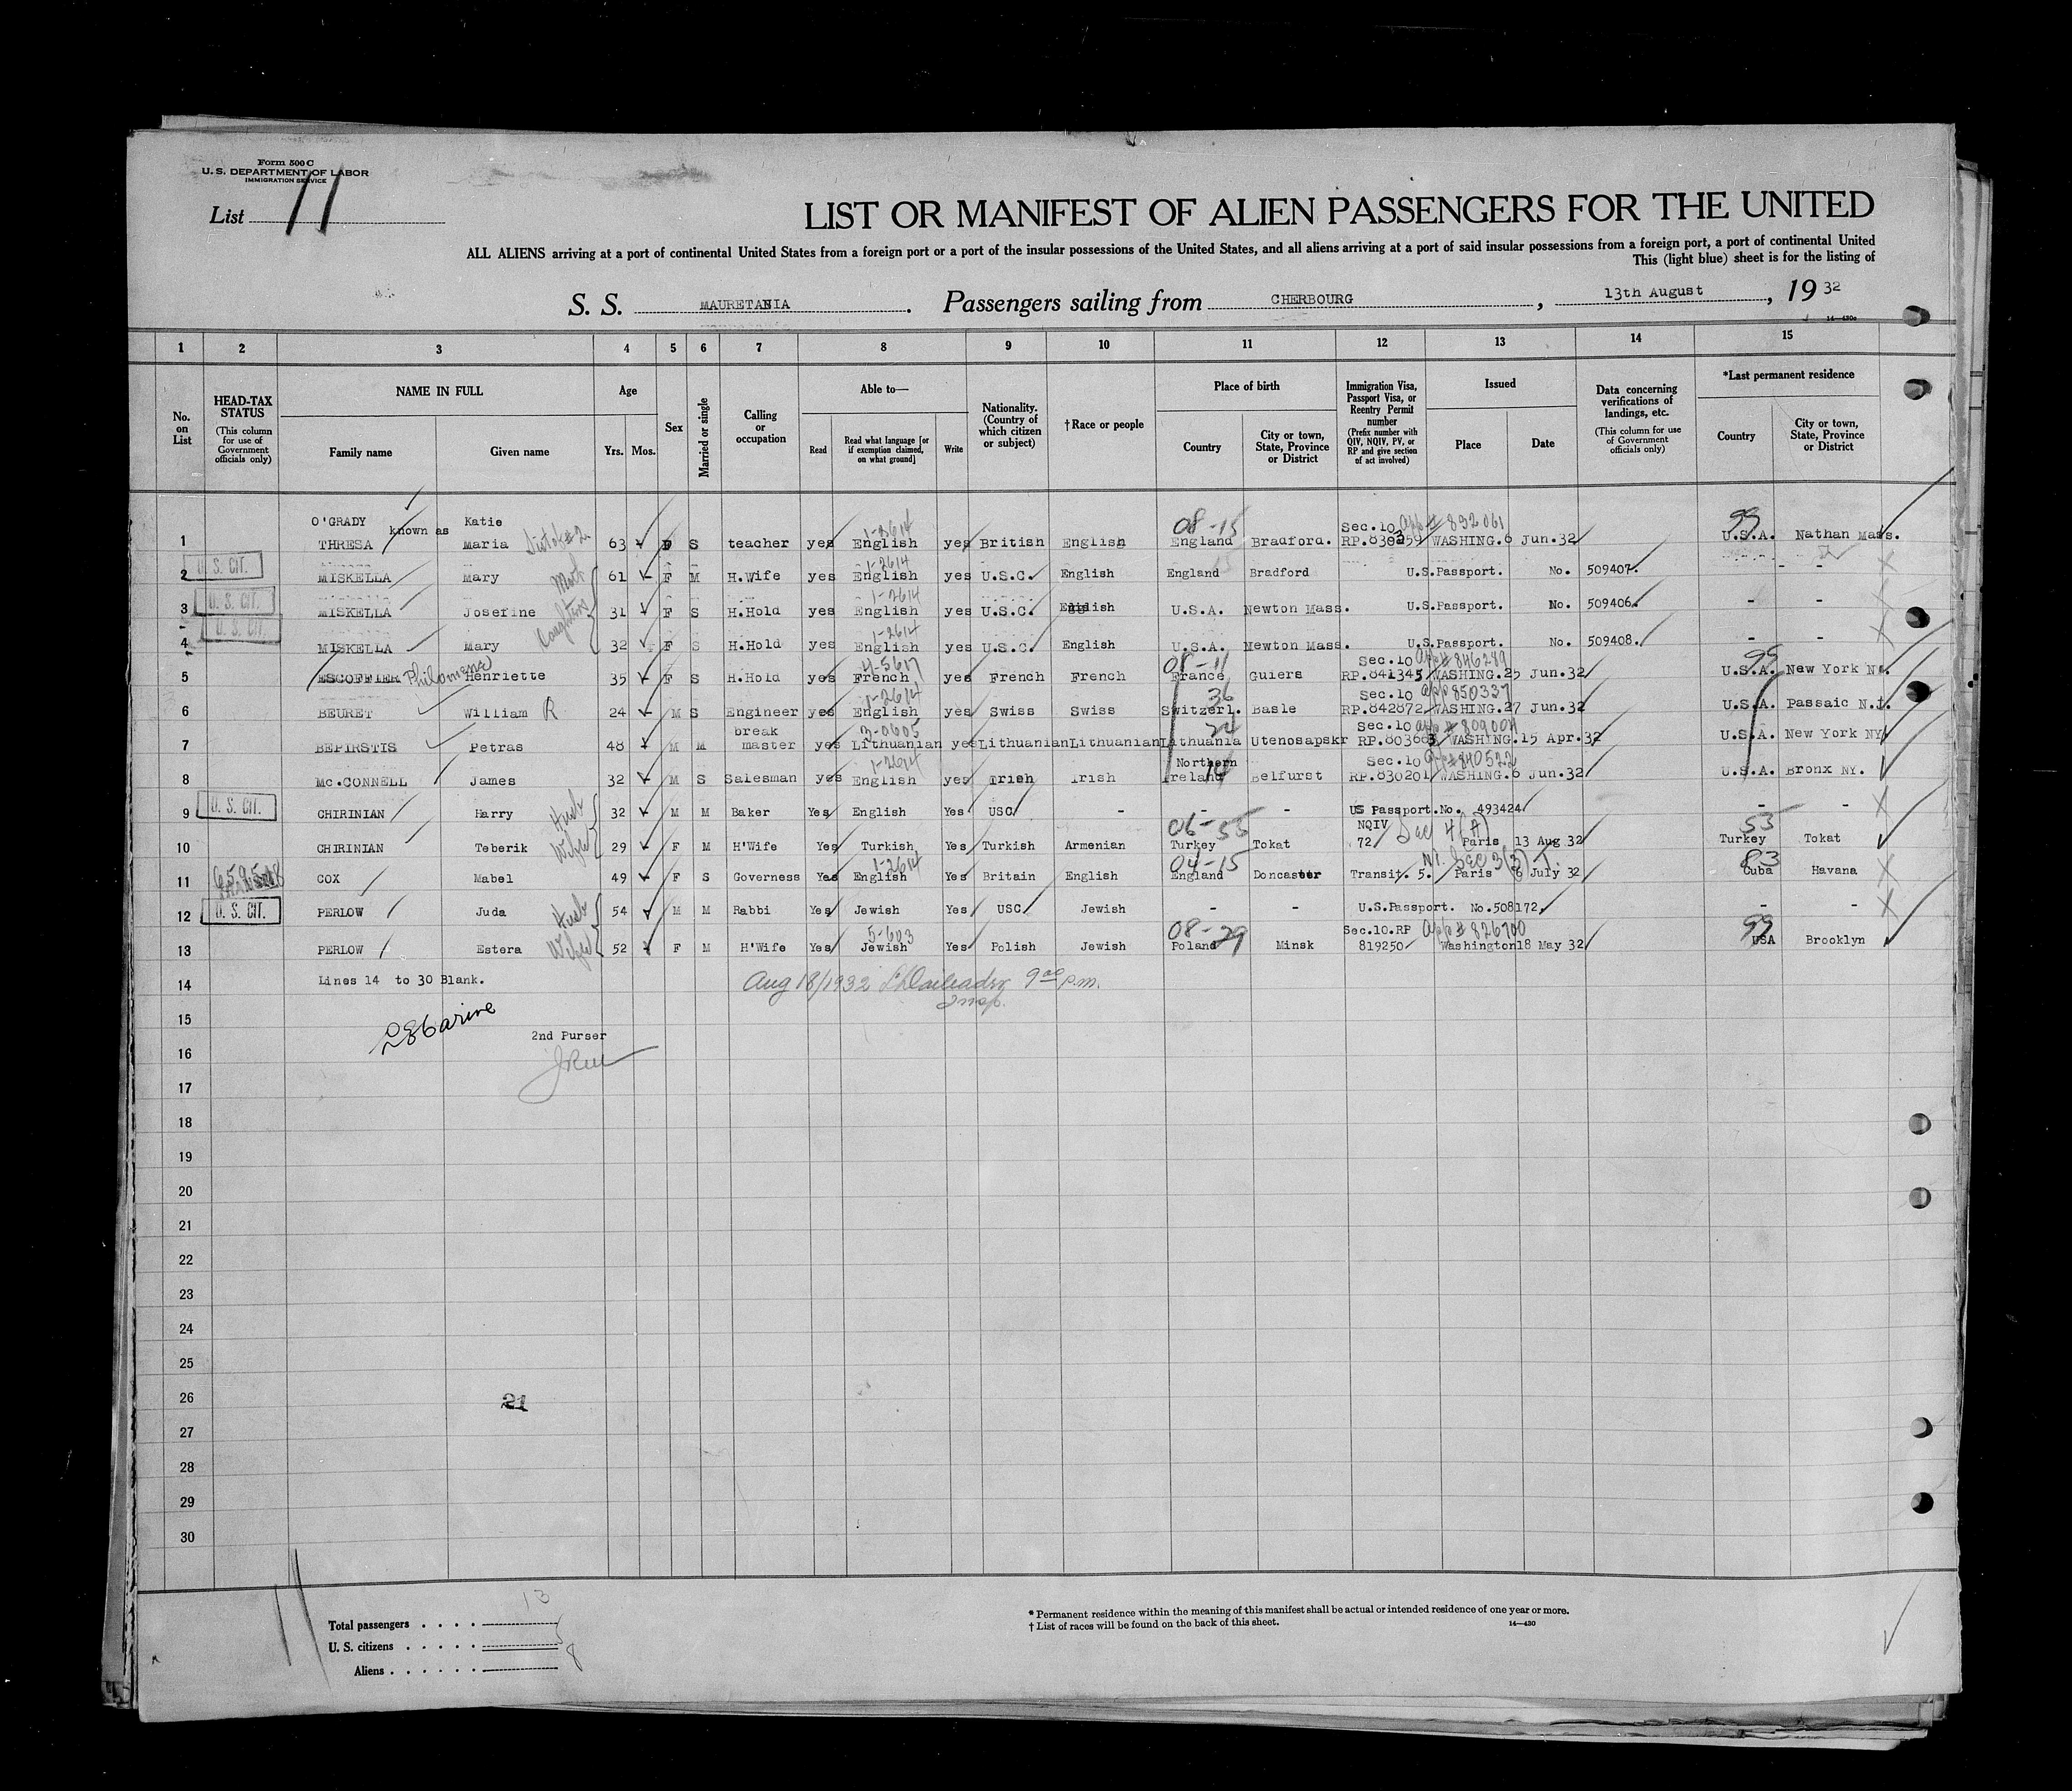 Form 500 C
U. S. DEPARTMENT OF LABOR
IMMIGRATION SERVICE
List 11
LIST OR MANIFEST OF ALIEN PASSENGERS FOR THE UNITED
ALL ALIENS arriving at a port of continental United States from a foreign port or a port of the insular possessions of the United States, and all aliens arriving at a port of said insular possessions from a foreign port, a port of continental United
This (light blue) sheet is for the listing of
S. S. MAURETANIA. Passengers sailing from CHERBOURG, 13th August, 19 32
14—430c
1 2 3 4 5 6 7 8 9 10 11 12 13 14 15
No. on List
HEAD-TAX STATUS (This column for use of Government officials only)
NAME IN FULL Family name Given name
Age Yrs. Mos.
Sex
Married or single
Calling or occupation
Able to— Read Read what language [or if exemption claimed, on what ground] Write
Nationality. (Country of which citizen or subject)
†Race or people
Place of birth Country City or town, State, Province or District
Immigration Visa, Passport Visa, or Reentry Permit number (Prefix number with QIV, NQIV, PV, or RP and give section of act involved)
Issued Place Date
Data concerning verifications of landings, etc. (This column for use of Government officials only)
*Last permanent residence Country City or town, State, Province or District
O'GRADY known as Katie 1-2614 08-15 Sec.10 app# 892061 99
1 THRESA Maria Sister #2 63 F S teacher yes English yes British English England Bradford. RP.838259 WASHING. 6 Jun.32 U.S.A. Nathan Mass.
U. S. CIT. 1-2614
2 MISKELLA Mary Moth 61 F M H.Wife yes English yes U.S.C. English England Bradford U.S.Passport. No. 509407. - -
U. S. CIT. 1-2614
3 MISKELLA Josefine 31 F S H.Hold yes English yes U.S.C. English U.S.A. Newton Mass. U.S.Passport. No. 509406. - -
U. S. CIT. Daughters 1-2614
4 MISKELLA Mary 32 F S H.Hold yes English yes U.S.C. English U.S.A. Newton Mass. U.S.Passport. No. 509408. - -
4-5617 08-11 Sec.10 app# 846289 99
5 ESCOFFIER Philomene Henriette 35 F S H.Hold yes French yes French French France Guiers RP.841345 WASHING.25 Jun.32 U.S.A. New York NY.
1-2614 36 Sec.10 app 850337
6 BEURET William R 24 M S Engineer yes English yes Swiss Swiss Switzerl. Basle RP.842872 WASHING.27 Jun.32 U.S.A. Passaic N.J.
break 3-0605 24 Sec.10 app# 809004
7 BEPIRSTIS Petras 48 M M master yes Lithuanian yes Lithuanian Lithuanian Lithuania Utenosapskr RP.803683 WASHING.15 Apr.32 U.S.A. New York NY
1-2614 Northern Sec.10 app# 840522
8 Mc.CONNELL James 32 M S Salesman yes English yes Irish Irish Ireland Belfurst RP.830201 WASHING.6 Jun.32 U.S.A. Bronx NY.
U. S. CIT.
9 CHIRINIAN Harry Husb 32 M M Baker Yes English Yes USC - - - US Passport.No. 493424 - -
06-53 NQIV Sec 4(A) 53
10 CHIRINIAN Teberik Wife 29 F M H'Wife Yes Turkish Yes Turkish Armenian Turkey Tokat 72 Paris 13 Aug 32 Turkey Tokat
1-2614 04-15 N.I. Sec 3(3) T. 83
11 COX Mabel 49 F S Governess Yes English Yes Britain English England Doncaster Transit. 5. Paris 6 July 32 Cuba Havana
U. S. CIT.
12 PERLOW Juda Husb 54 M M Rabbi Yes Jewish Yes USC Jewish - - U.S.Passport. No.508172. - -
5-603 08-29 Sec.10.RP app# 826700 99
13 PERLOW Estera Wife 52 F M H'Wife Yes Jewish Yes Polish Jewish Poland Minsk 819250 Washington 18 May 32 USA Brooklyn
14 Lines 14 to 30 Blank. Aug 18/1932 9 00 p.m.
Insp.
15
2nd Purser
16
17
18
19
20
21
22
23
24
25
26 21
27
28
29
30
Total passengers . . . . . 13
U. S. citizens . . . . . 5
Aliens . . . . . . 8
* Permanent residence within the meaning of this manifest shall be actual or intended residence of one year or more.
† List of races will be found on the back of this sheet.
14—430